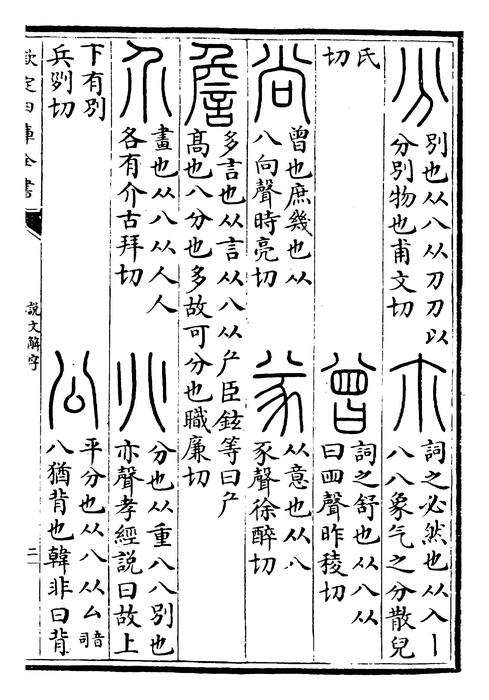 分
別也从八从刀刀以
分別物也甫文切
尒
詞之必然也从入丨
八八象气之分散兒
氏
切
曾
詞之舒也从八从
曰𡆧聲昨稜切
尚
曾也庶幾也从
八向聲時亮切
㒸
从意也从八
豕聲徐醉切
詹
多言也从言从八从𠂆臣鉉等曰𠂆
髙也八分也多故可分也職廉切
介
畫也从八从人人
各有介古拜切
𠔁
分也从重八八別也
亦聲孝經說曰故上
下有別
兵列切
公
平分也从八从厶音司
八猶背也韓非曰背
欽定四庫全書
說文解字
二